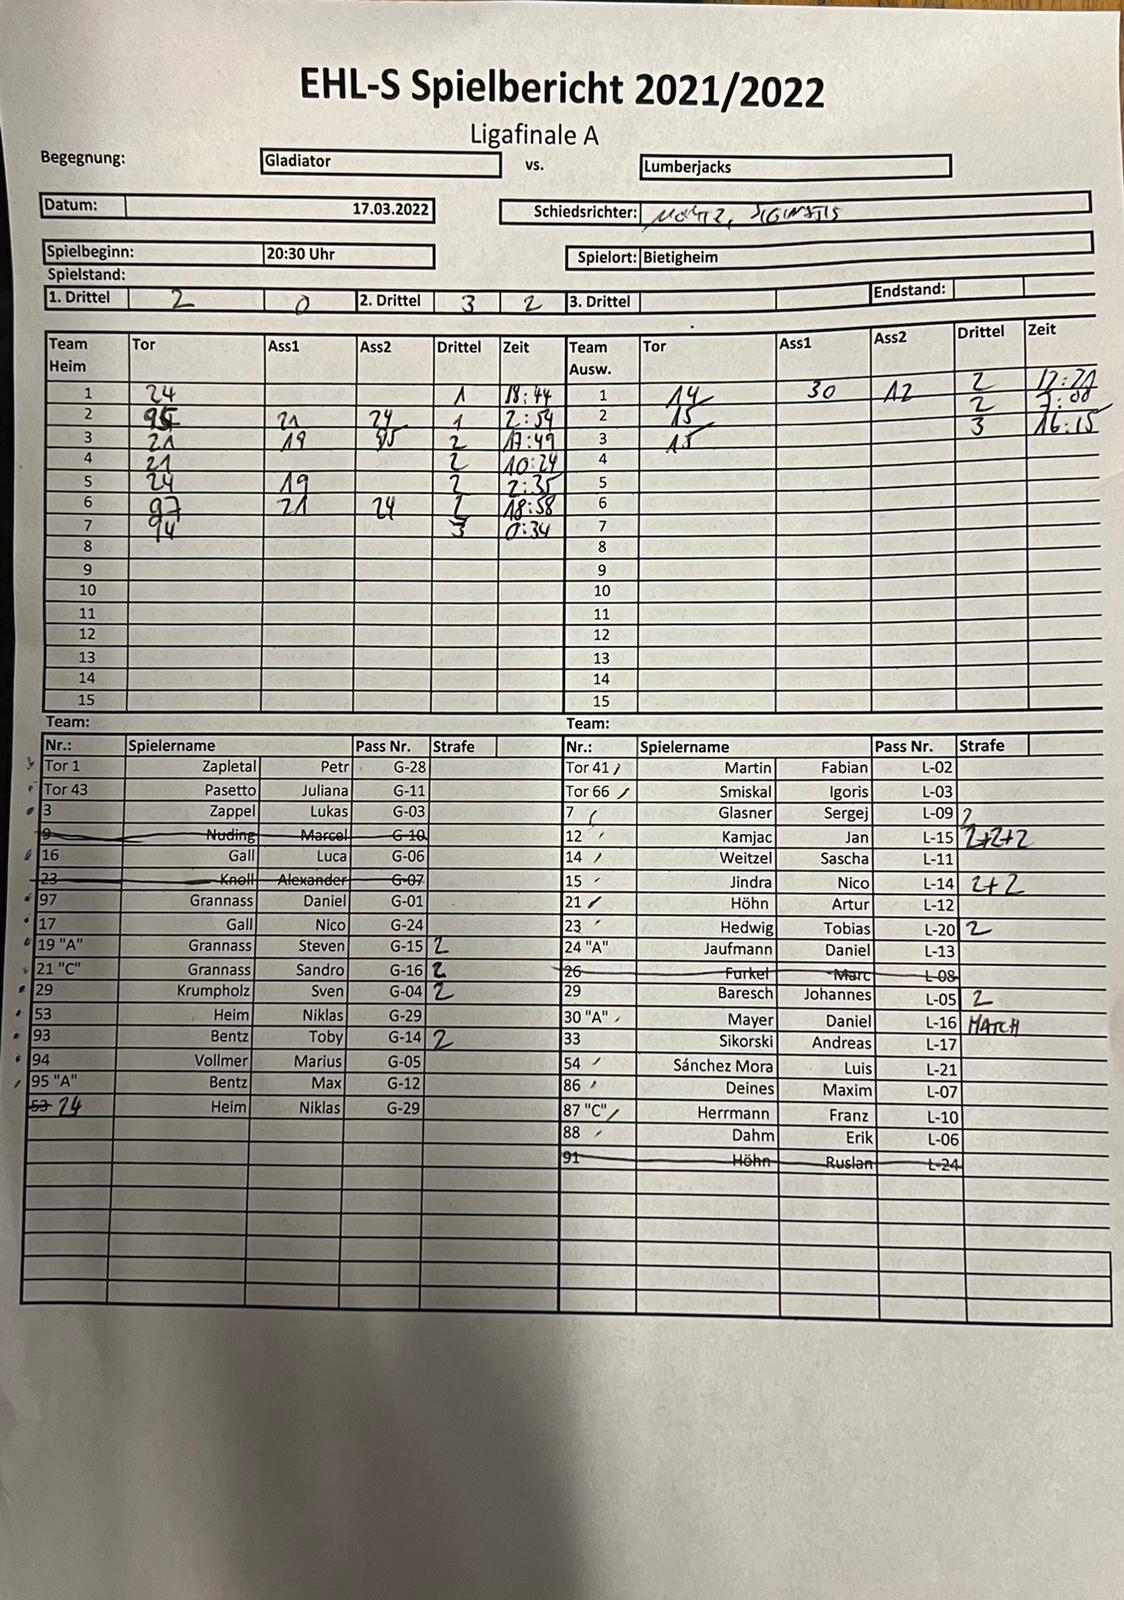 EHL-S Spielbericht 2021/2022
Ligafinale A
Begegnung: Gladiator vs. Lumberjacks
Datum: 17.03.2022 Schiedsrichter:
Spielbeginn: 20:30 Uhr Spielort: Bietigheim
Spielstand:
1. Drittel 2 0 2. Drittel 3 2 3. Drittel Endstand:
Team Heim Tor Ass1 Ass2 Drittel Zeit Team Ausw. Tor Ass1 Ass2 Drittel Zeit
1 24 1 18:44 1 14 30 12 2 17:21
2 95 21 24 1 2:54 2 15 2 7:00
3 21 19 95 2 17:49 3 15 3 16:15
4 21 2 10:24 4
5 24 19 2 2:35 5
6 97 21 24 18:58 6
7 94 3 0:34 7
8 8
9 9
10 10
11 11
12 12
13 13
14 14
15 15
Team: Team:
Nr.: Spielername Pass Nr. Strafe Nr.: Spielername Pass Nr. Strafe
Tor 1 Zapletal Petr G-28 Tor 41 Martin Fabian L-02
Tor 43 Pasetto Juliana G-11 Tor 66 Smiskal Igoris L-03
3 Zappel Lukas G-03 7 Glasner Sergej L-09 2
9 Nuding Marcel G-10 12 Kamjac Jan L-15 2+2+2
16 Gall Luca G-06 14 Weitzel Sascha L-11
23 Knoll Alexander G-07 15 Jindra Nico L-14 2+2
97 Grannass Daniel G-01 21 Höhn Artur L-12
17 Gall Nico G-24 23 Hedwig Tobias L-20 2
19 "A" Grannass Steven G-15 2 24 "A" Jaufmann Daniel L-13
21 "C" Grannass Sandro G-16 2 26 Furkel Marc L-08
29 Krumpholz Sven G-04 2 29 Baresch Johannes L-05 2
53 Heim Niklas G-29 30 "A" Mayer Daniel L-16 MATCH
93 Bentz Toby G-14 2 33 Sikorski Andreas L-17
94 Vollmer Marius G-05 54 Sánchez Mora Luis L-21
95 "A" Bentz Max G-12 86 Deines Maxim L-07
53 24 Heim Niklas G-29 87 "C" Herrmann Franz L-10
88 Dahm Erik L-06
91 Höhn Ruslan L-24